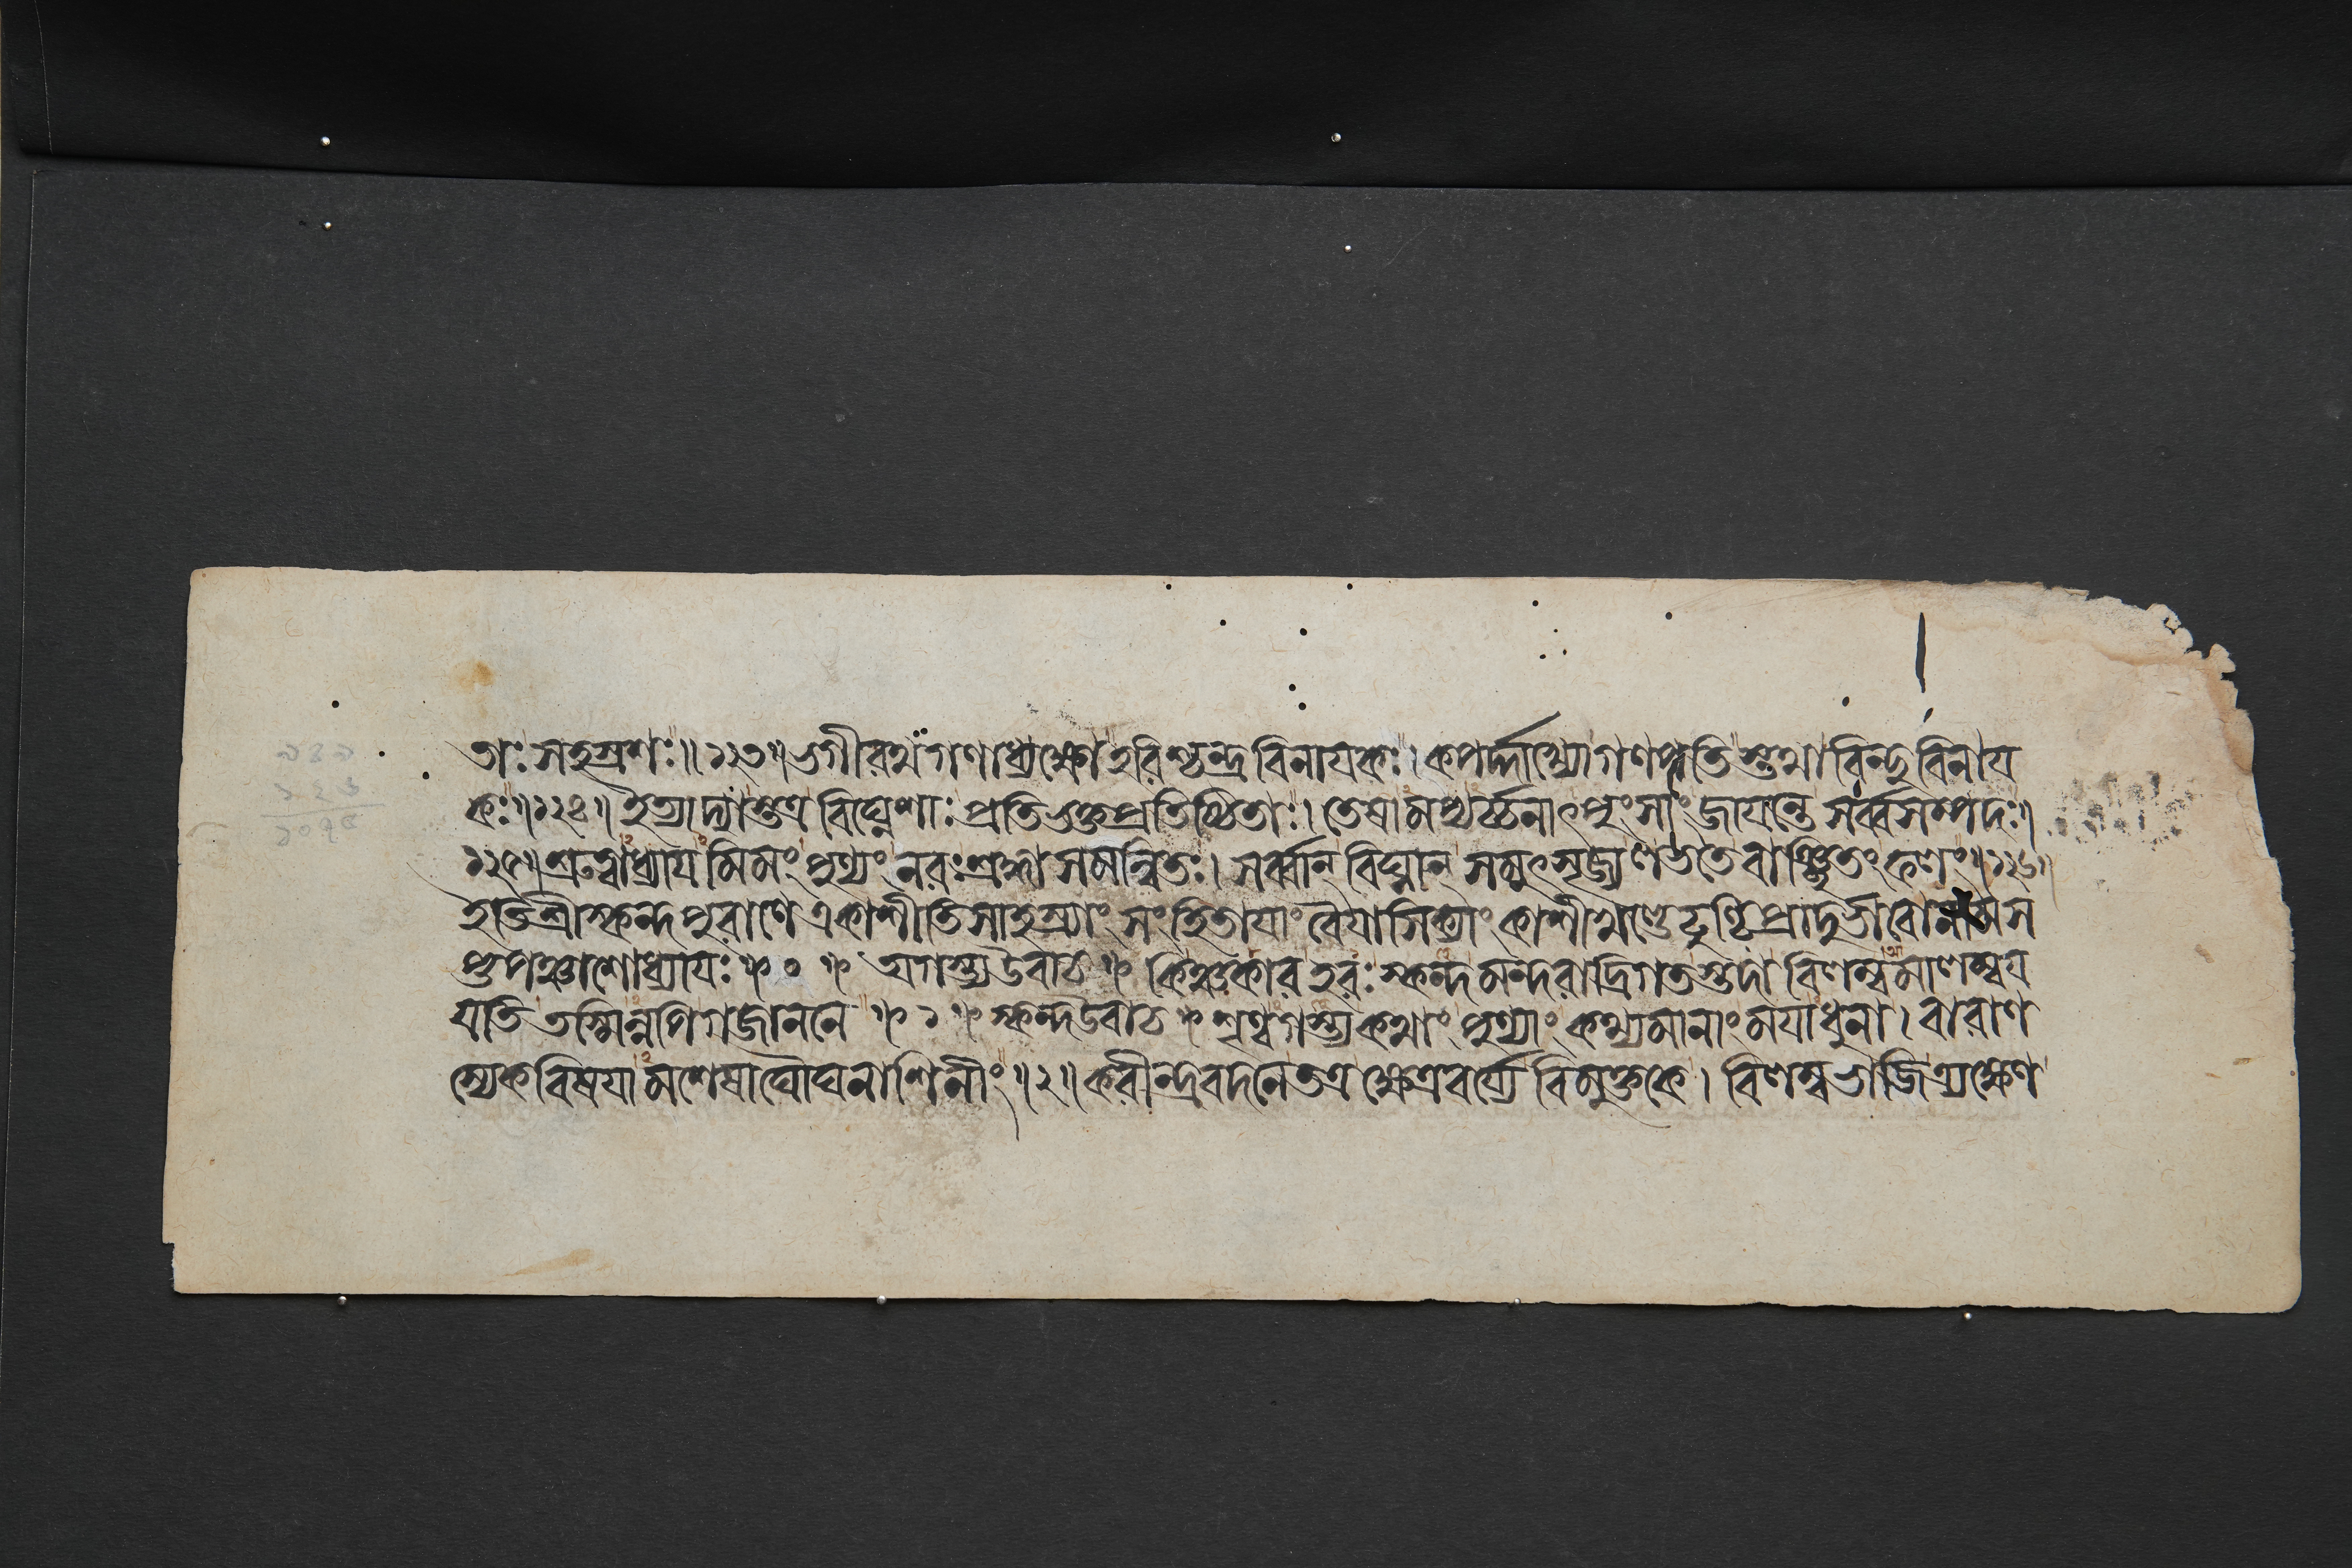 তাঃ সহস্রশঃ॥১২৩॥ ভগীরথগণাধ্যক্ষো হরিশ্চন্দ্রবিনায়কঃ। কপর্দ্দাখ্যো গণপতিস্তথা বিন্দুবিনায়
কঃ॥১২৪॥ ইত্যাদ্যাস্তত্র বিঘ্নেশাঃ প্রতিভক্তপ্রতিষ্ঠিতাঃ। তেষামপ্যর্চ্চনাৎপুংসাং জায়ন্তে সর্ব্বসম্পদঃ॥
১২৫॥ শ্রুত্বাধ্যায়মিমং পুণ্যং নরঃ শ্রদ্ধাসমন্বিতঃ। সর্ব্বান্ বিঘ্নান্ সমুৎসৃজ্য লভতে বাঞ্ছিতং ফলং॥১২৬॥
ইতি শ্রীস্কন্দপুরাণে একাশীতিসাহস্র্যাং সংহিতায়াং বৈয়াসিক্যাং কাশীখণ্ডে ঢুণ্ঢিপ্রাদুর্ভাবো নাম স
প্তপঞ্চাশোধ্যায়ঃ ০ অগস্ত্য উবাচ কিঞ্চকার হরঃ স্কন্দ মন্দরাদ্রিগতস্তদা বিলম্বমালম্বয়
য়তি তস্মিন্নপি গজাননে ১ স্কন্দ উবাচ শৃণ্বগস্ত্য কথাং পুণ্যাং কথ্যমানাং ময়াধুনা। বারাণ
স্যেকবিষয়ামশেষাঘৌঘনাশিনীং॥২॥ করীন্দ্রবদনে তত্র ক্ষেত্রবর্য্যে বিমুক্তকে। বিলম্বভাজি ত্র্যক্ষেণ